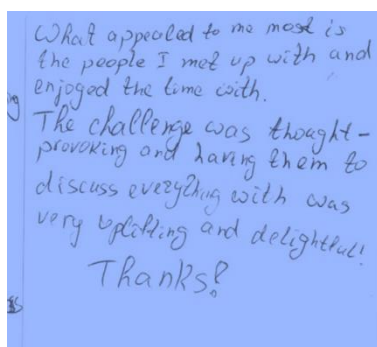 What appealed to me most is
the people I met up with and
enjoyed the time with.
The challenge was thought-
provoking and having them to
discuss everything with was
very uplifting and delightful!
Thanks!